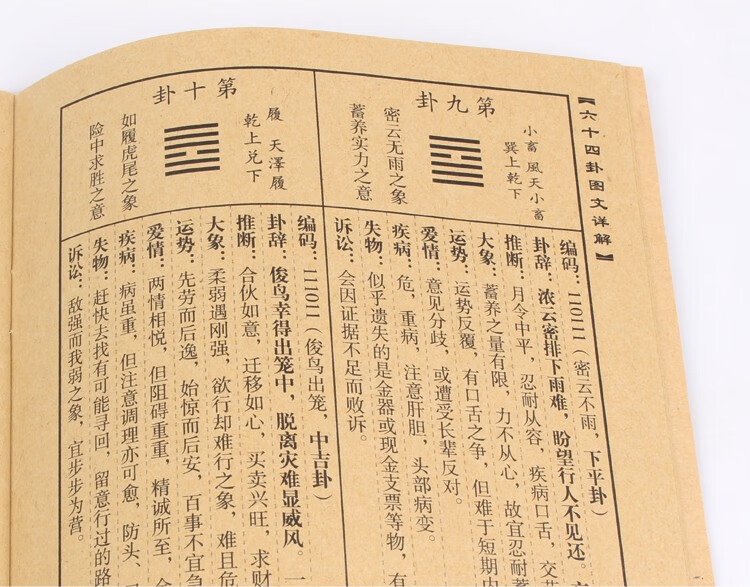 【六十四卦图文详解】
第九卦
小畜 風天小畜
巽上乾下
密云无雨之象
蓄养实力之意
编码：110111（密云不雨，下平卦）
卦辞：浓云密排下雨难，盼望行人不见还。
推断：月令中平，忍耐从容，疾病口舌，交
大象：蓄养之量有限，力不从心，故宜忍耐
运势：运势反覆，有口舌之争，但难于短期内
爱情：意见分歧，或遭受长辈反对。
疾病：危，重病，注意肝胆，头部病变。
失物：似乎遗失的是金器或现金支票等物，有
诉讼：会因证据不足而败诉。
第十卦
履 天澤履
乾上兑下
如履虎尾之象
险中求胜之意
编码：111011（俊鸟出笼，中吉卦）
卦辞：俊鸟幸得出笼中，脱离灾难显威风。一
推断：合伙如意，迁移如心，买卖兴旺，求财
大象：柔弱遇刚强，欲行却难行之象，难且危
运势：先劳而后逸，始惊而后安，百事不宜急
爱情：两情相悦，但阻碍重重，精诚所至，金
疾病：病虽重，但注意调理亦可愈，防头、
失物：赶快去找有可能寻回，留意行过的路
诉讼：敌强而我弱之象，宜步步为营。